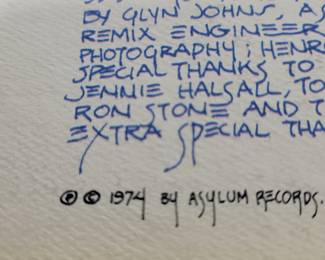 BY GLYN JOHNS, AS
REMIX ENGINEER
PHOTOGRAPHY ; HENR
SPECIAL THANKS TO
JENNIE HALSALL, TO
RON STONE AND T
EXTRA SPECIAL THA
℗ © 1974 BY ASYLUM RECORDS.